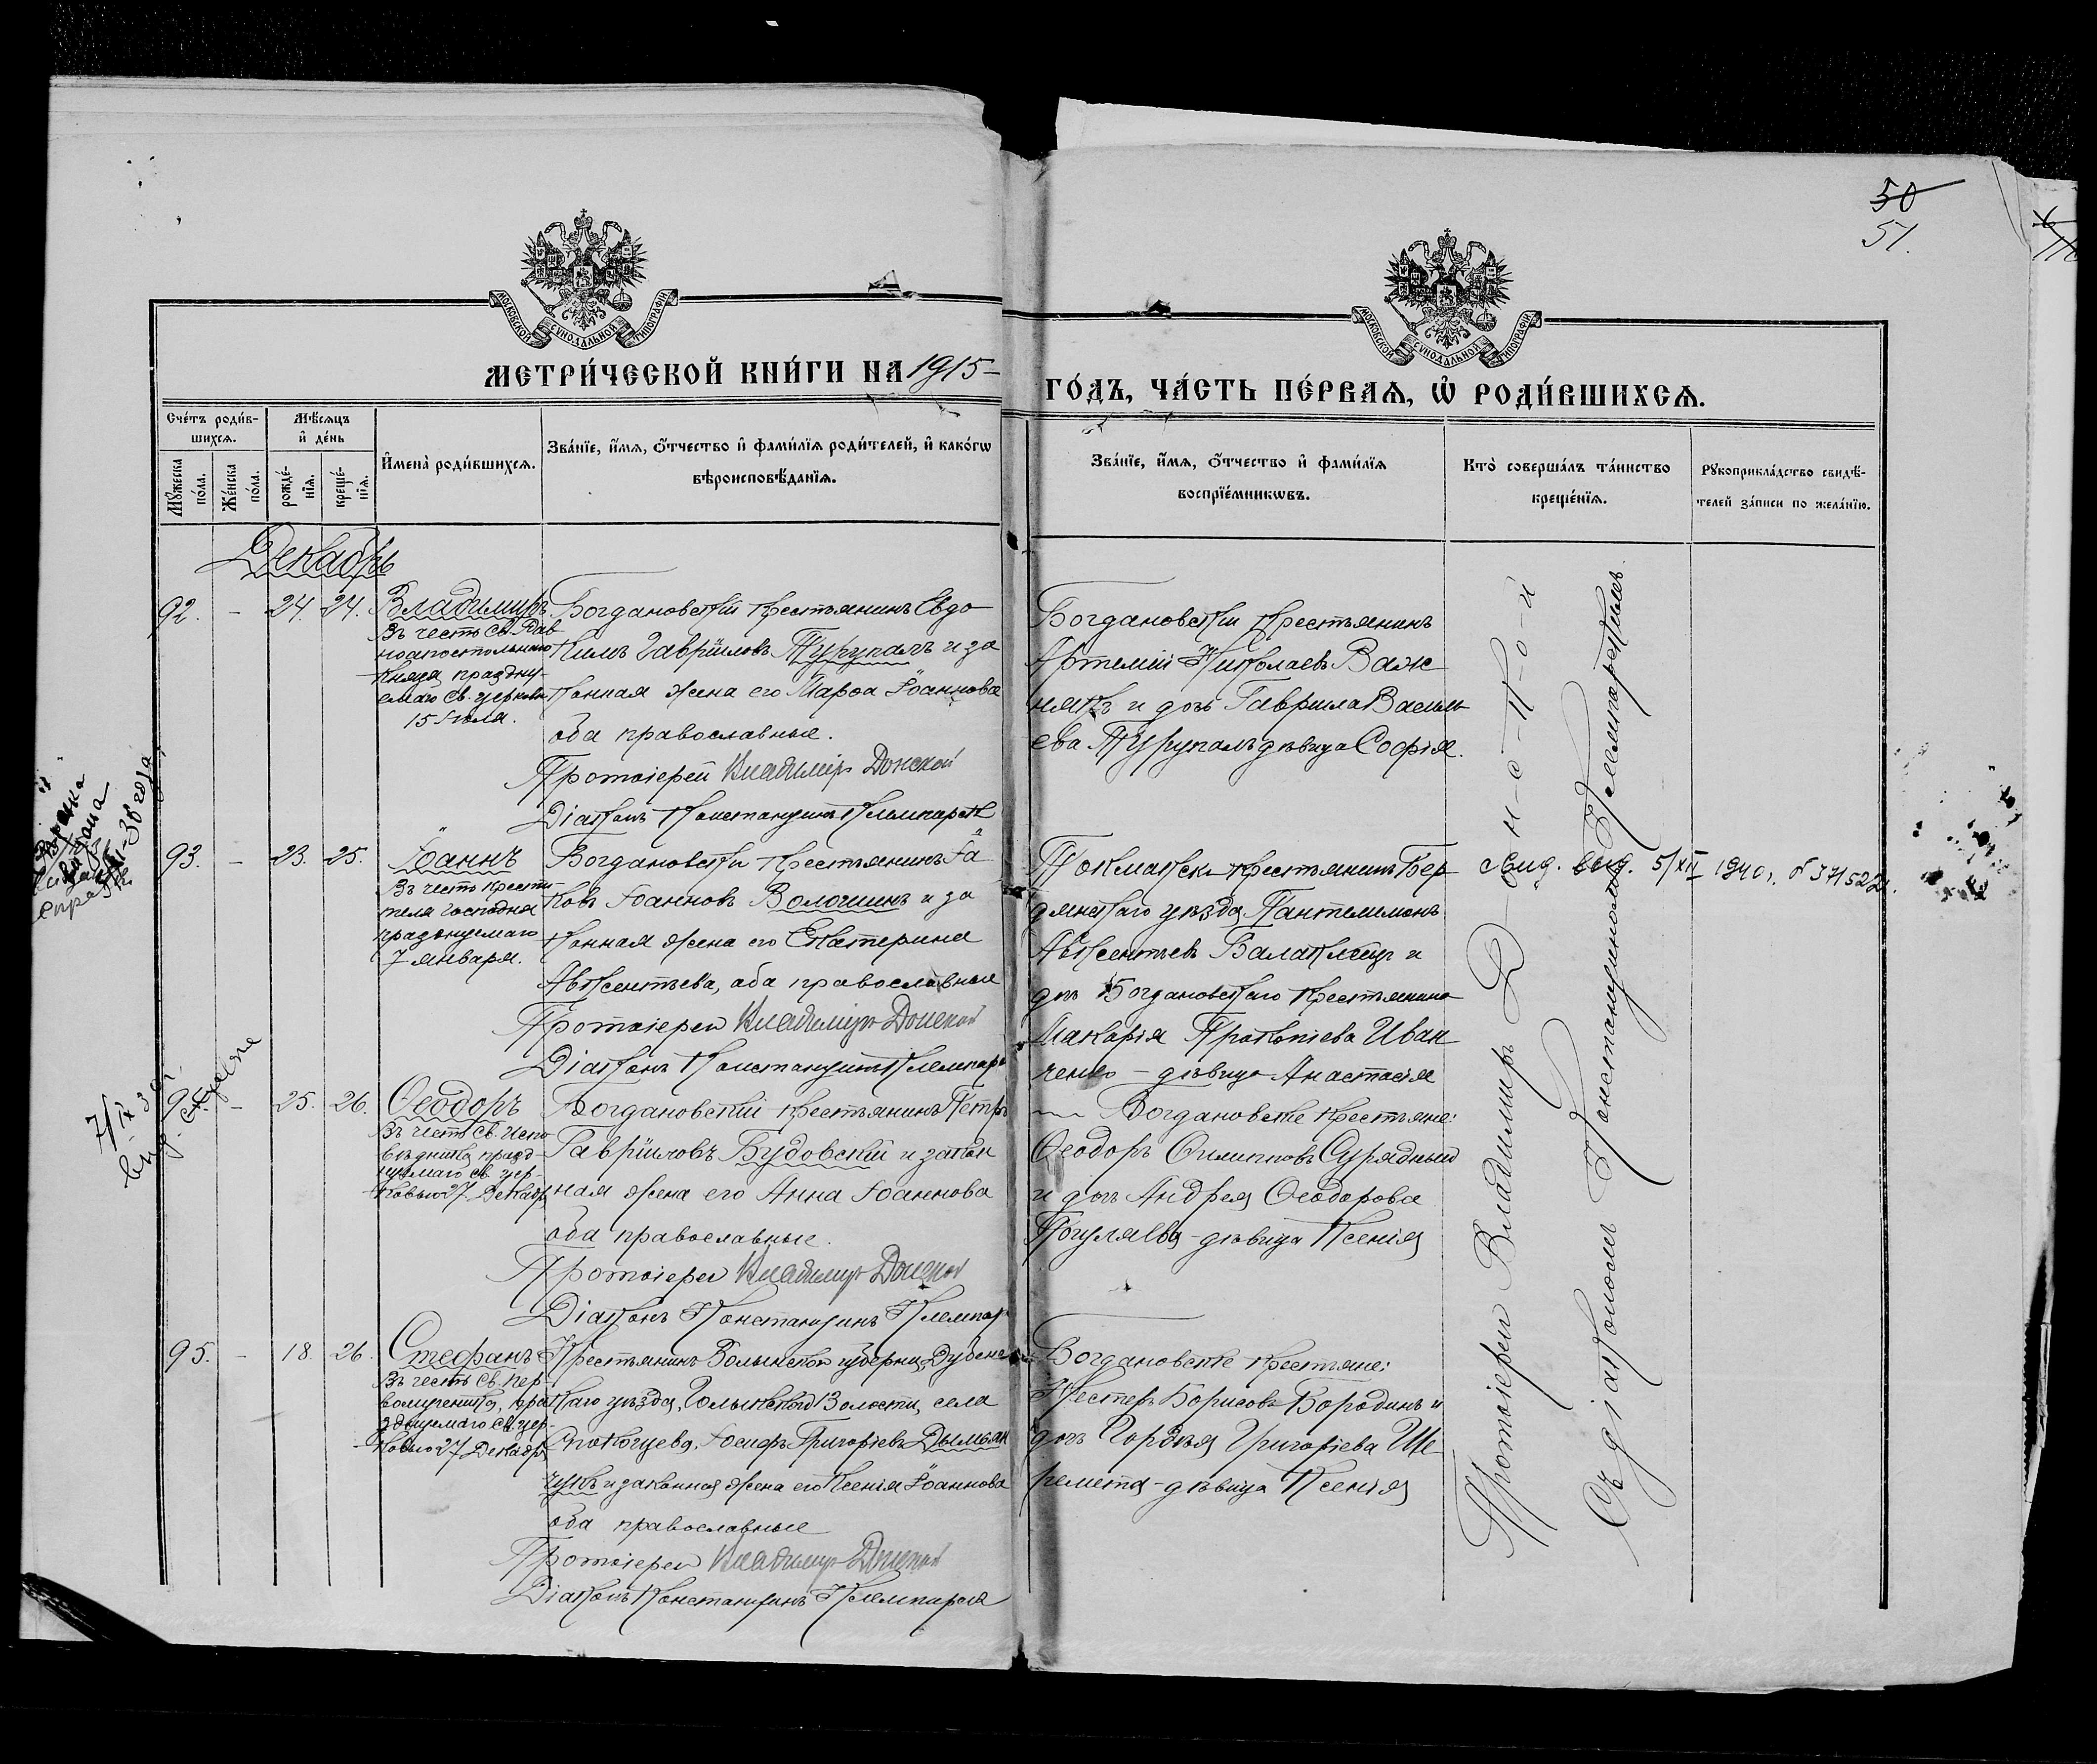 50
51.
МОСКОВСКОЙ СѴНОДАЛЬНОЙ ТИПОГРАФІИ
МОСКОВСКОЙ СѴНОДАЛЬНОЙ ТИПОГРАФІИ
МЕТРИ́ЧЕСКОЙ КНИ́ГИ НА 1915
ГО́ДЪ, ЧА́СТЬ ПЕ́РВАѦ, Ѡ҆ РОДИ́ВШИХСѦ.
Сче́тъ роди́в-
шихсѧ.
Мꙋ́жеска по́ла.
Же́нска по́ла.
Мѣ́сѧцъ
и҆ де́нь
рожде́-нїѧ.
креще́-нїѧ.
И҆мена̀ роди́вшихсѧ.
Зва́нїе, и҆́мѧ, ѻ҆́тчество и҆ фами́лїѧ роди́телей, и҆ како́гѡ
вѣроисповѣ́данїѧ.
Зва́нїе, и҆́мѧ, ѻ҆́тчество и҆ фами́лїѧ
воспрїе́мникѡвъ.
Кто̀ соверша́лъ та́инство
креще́нїѧ.
Рꙋкоприкла́дство свидѣ́-
телей за́писи по жела́нїю.
Декабрь
92. - 24. 24. Владимиръ
Въ честь Св. Рав
ноапостольнаго
Князя праздну-
емаго Св. церковью
15 Іюля.
Богдановскій крестьянинъ Евдо
кимъ Гавріиловъ Турупалъ и за
конная жена его Марѳа Іоаннова
оба православные.
Протоіерей Владиміръ Донской
Діаконъ Константинъ Клемпарскій
Богдановскій крестьянинъ
Артемій Николаевъ Важ
някъ и дочь Гавріила Василь
ева Турупалъ дѣвица Софія.
93. - 23. 25. Іоаннъ
Въ честь Крести-
теля Господня
празднуемаго
7 января.
Богдановскій крестьянинъ Іа
ковъ Іоанновъ Волошинъ и за
конная жена его Екатерина
Авксентьева, оба православные
Протоіерей Владиміръ Донской
Діаконъ Константинъ Клемпарс
Токмакск. крестьянинъ Бер
дянскаго уѣзда Пантелимонъ
Авксентьевъ Балаклѣецъ и
дочь Богдановскаго крестьянина
Макарія Прокопіева Иван
ченко - дѣвица Анастасія
свид. выд. 5/XII 1940 г. № 371522.
7/IX 3
выд.
94. - 25. 26. Ѳеодоръ
Въ честь Св. Испо
вѣдника празд-
нуемаго св. цер-
ковью 27 Декабря
Богдановскій крестьянинъ Петръ
Гавріиловъ Будовскій и закон
ная жена его Анна Іоаннова
оба православные.
Протоіерей Владиміръ Донской
Діаконъ Константинъ Клемпар
Богдановскіе крестьяне:
Ѳеодоръ Филипповъ Сурядный
и дочь Андрея Ѳеодорова
Погуляева - дѣвица Ксенія
95. - 18. 26. Стефанъ
Въ честь Св. Пер-
вомученика, пра
зднуемаго Св. цер-
ковью 27 Декабря
Крестьянинъ Волынской губерніи, Дубенс
каго уѣзда, Волости, села
Іосифъ Григорьевъ Дымьян
чукъ и законная жена его Ксенія Іоаннова
оба православные
Протоіерей Владиміръ Донской
Діаконъ Константинъ Клемпарскій
Богдановскіе крестьяне:
Нестеръ Борисовъ Бородинъ и
дочь Гордѣя Григоріева Ше-
ремета - дѣвица Ксенія
Протоіерей Владимиръ Д-о-н-с-к-о-й
Съ діакономъ Константиномъ Клемпарскимъ.